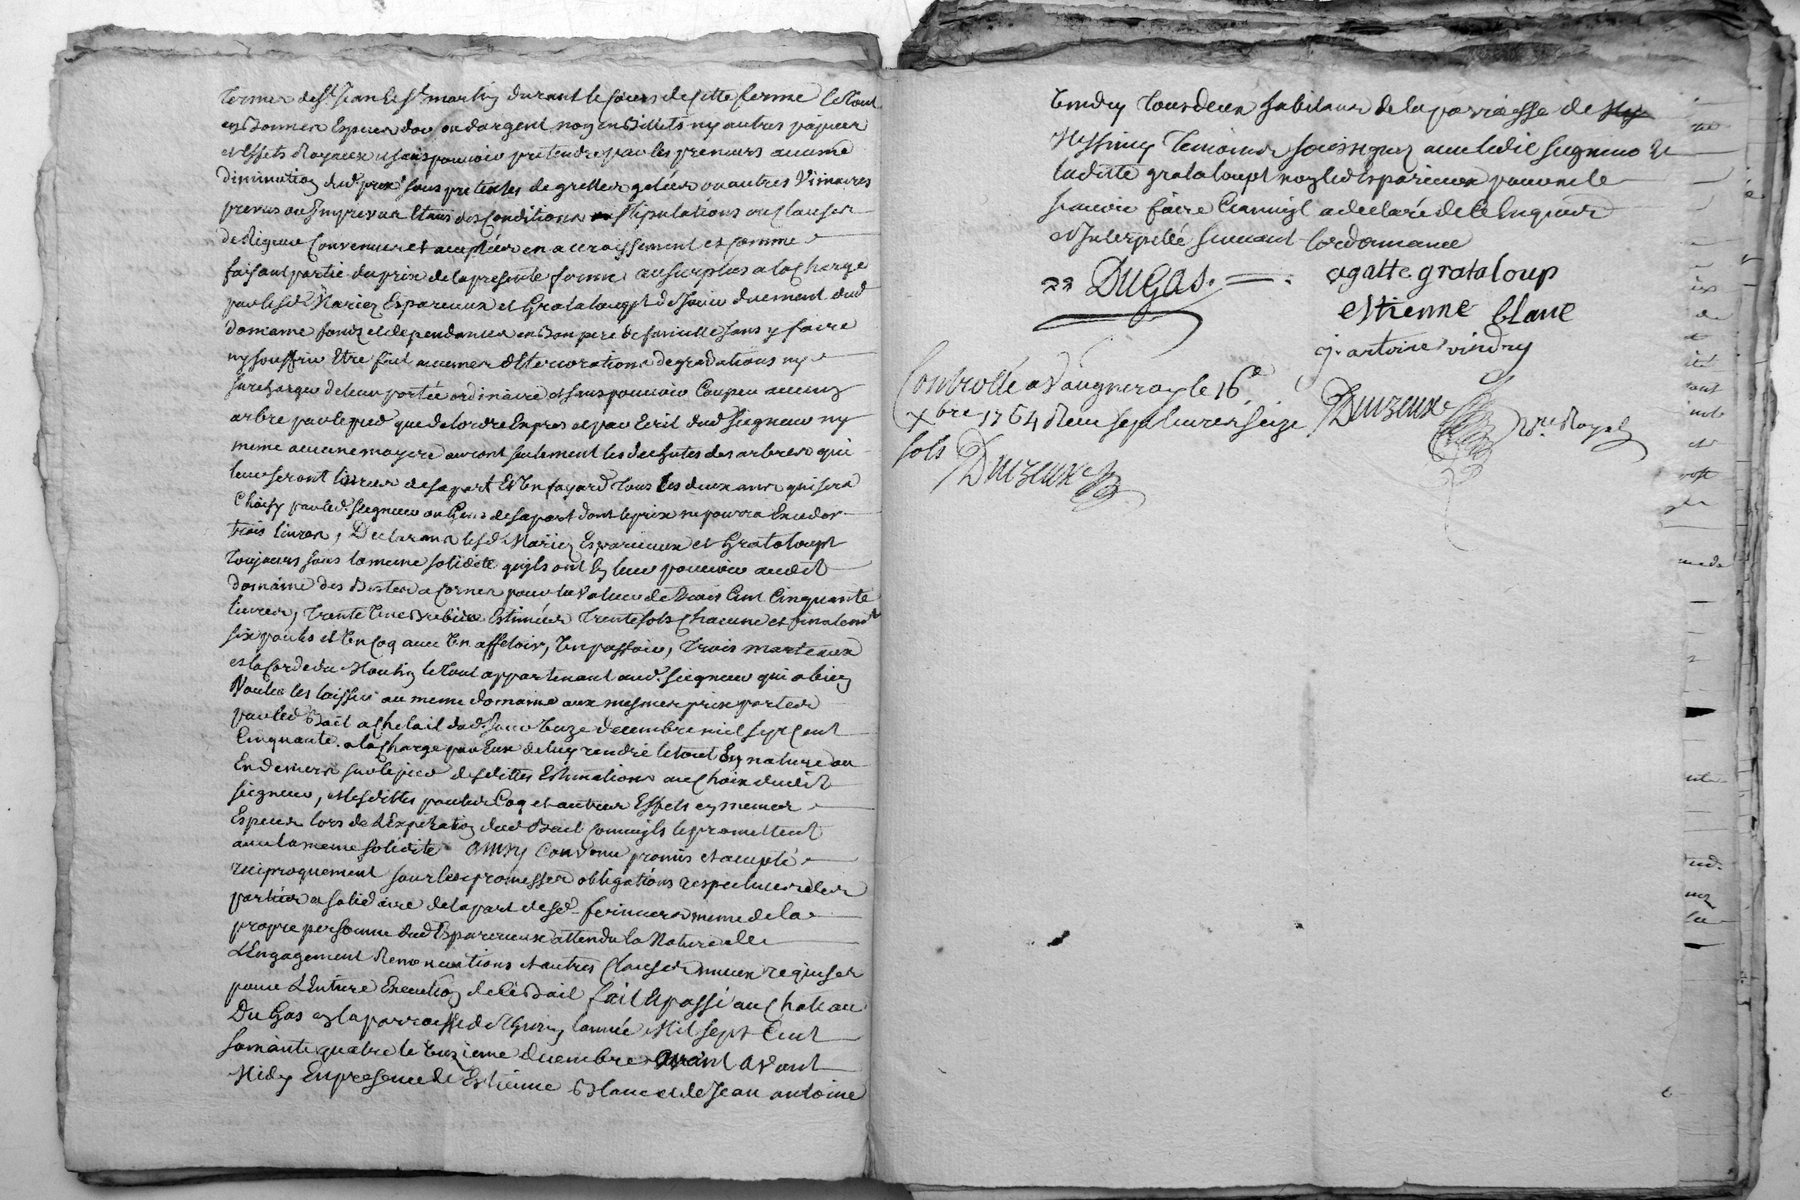 termes de St Jean et St martin durant le cours de cette ferme le tout
en Bonnes Especes d'or ou d'argent non en Billets ny autres papiers
et Effets Royaux et sans pouvoir pretendre par les preneurs aucune
diminution dud prix sous pretextes de gresles gelées ou autres Vimaires
prevus ou Imprevus Etans des Conditions Stipulations ou Clauses
de Rigueur Convenues et acceptées en accroissement et comme
faisant partie du prix de la presente ferme au surplus a la Charge
par lesd Mariez Espareieux et Grataloupt de Jouir duement dud
domaine fonds et dependances en Bon pere de famille sans y faire
ny souffrir Etre fait aucunes deteriorations degradations ny
surcharger de leur portée ordinaire et sans pouvoir Couper aucun
arbre par le pied que de lordre Expres et par Ecrit dud Seigneur ny
meme aucune mayere auront seulement les dechutes des arbres qui
leur seront livrées de sa part et Un fayard tous les deux ans qui sera
Choisy par led. Seigneur ou Gens de sa part dont le prix ne pourra Exceder
trois livres, Declarans lesd. Mariez Espareieux et Grataloupt
toujours sous la meme solidité quils ont En leur pouvoir audit
domaine des Bestes a Cornes pour la Valeur de Trois Cent Cinquante
livres, Trente Une Brebis Estimées Trente sols Chacune et finalemt
six poules et Un Coq avec Un affetoir, Un passoir, Trois marteaux
et la Corde du Moulin le tout appartenant aud. Seigneur qui a bien
Voulu les laisser au meme domaine aux mesmes prix portés
par led Bail a Chetail dud. Jour Unze decembre mil sept Cent
Cinquante. a la Charge par Eux de luy rendre le tout En nature ou
En deniers sur le pied desdittes Estimations au Choix dudit
seigneur, et lesdittes poules Coq et autres Effets en memes
Especes lors de l'Expiration dud Bail comm'ils le promettent
avec la meme solidité Ainsy Convenu promis et accepté
reciproquement sous les promesses obligations respectives des
parties et solidaire de la part desd. fermiers meme de la
propre personne dud Espareieux attendu la Nature de
L'Engagement Renonciations et autres Clauses mieux requises
pour L'Entiere Execution de Ce Bail fait Et passé au Chateau
Du Gas en la parroisse de Thurin l'année Mil sept Cent
soixante quatre le Unzieme decembre avant
Midy En presence de Estienne Blanc et de Jean antoine
Vindry Tous deux habitans de la parroisse de
Messimy Temoins soussignez avec ledit Seigneur Et
laditte grataloupt non led Espareieux pour ne le
scavoir faire Comm'il a declaré de Ce Enquis
et Interpellé suivant lordonnance
DUGAS. agatte grataloup
estienne blanc
j. antoine vindry
Controllé a Vaugneray le 16e
Xbre 1764 Reçu sept livres seize
sols
Duizeux
Duizeux Nre Royal